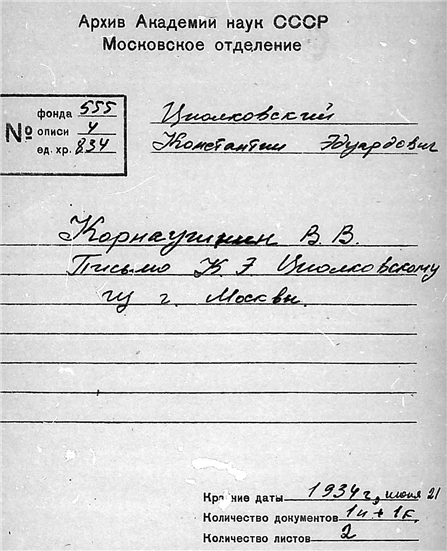 Архив Академии наук СССР
Московское отделение
№
фонда 555
описи 4
ед. хр. 834
Циолковский
Константин Эдуардович
В. В.
Письмо К. Э. Циолковскому
из г. Москвы.
Крайние даты 1934 г., июня 21
Количество документов 1п + 1к.
Количество листов 2